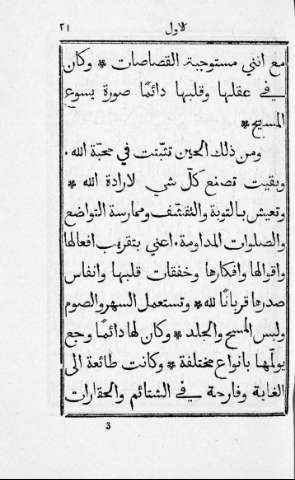 ٢١ لاول
مع انني مستوجبة القصاصات * وكان
في عقلها وقلبها دائمًا صورة يسوع
المسيح *
ومن ذلك الحين تثبّتت في محبّة الله.
وبقيت تصنع كلّ شي لارادة الله *
وتعيش بالتوبة والتقشّف وممارسة التواضع
والصلوات المداومة. اعني بتقريب افعالها
واقوالها وافكارها وخفقات قلبها وانفاس
صدرها قربانًا لله * وتستعمل السهر والصوم
ولبس المسح والجلد * وكان لها دائمًا وجع
يولّمها بانواع مختلفة * وكانت طائعة الى
الغاية وفارحة في الشتائم والحقارات
3